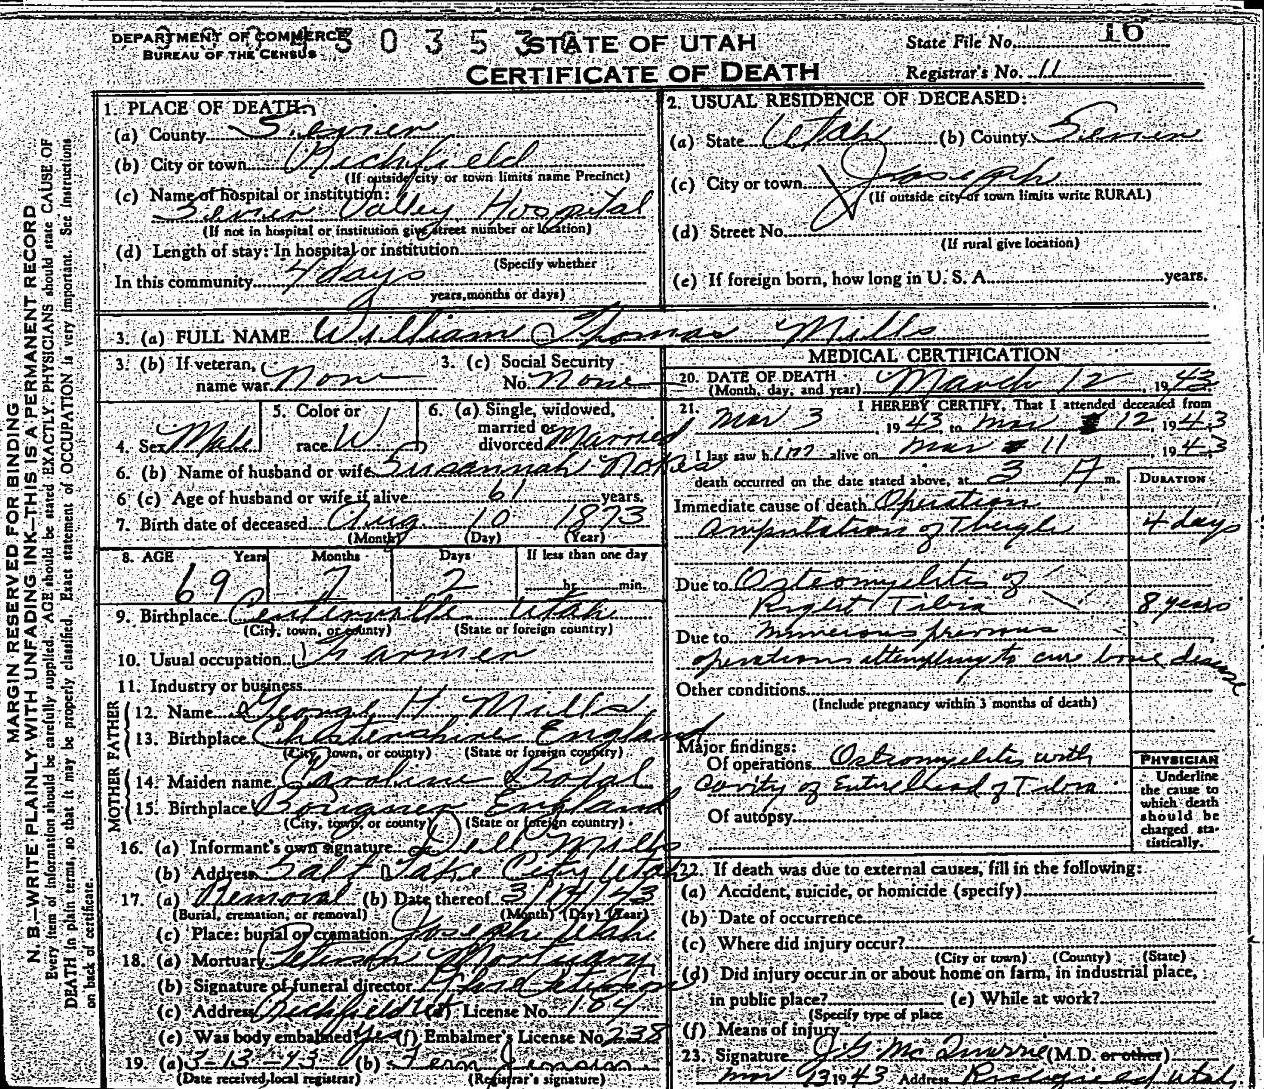 DEPARTMENT OF COMMERCE
BUREAU OF THE CENSUS
STATE OF UTAH
CERTIFICATE OF DEATH
State File No. 16
Registrar's No. 11
MARGIN RESERVED FOR BINDING
N. B.—WRITE PLAINLY WITH UNFADING INK—THIS IS A PERMANENT RECORD
Every item of information should be carefully supplied. AGE should be stated EXACTLY. PHYSICIANS should state CAUSE OF
DEATH in plain terms, so that it may be properly classified. Exact statement of OCCUPATION is very important. See Instructions
on back of certificate.
1. PLACE OF DEATH:
(a) County Sevier
(b) City or town Richfield
(If outside city or town limits name Precinct)
(c) Name of hospital or institution:
Sevier Valley Hospital
(If not in hospital or institution give street number or location)
(d) Length of stay: In hospital or institution
(Specify whether
In this community 4 days
years, months or days)
2. USUAL RESIDENCE OF DECEASED:
(a) State Utah (b) County Sevier
(c) City or town Joseph
(If outside city or town limits write RURAL)
(d) Street No.
(If rural give location)
(e) If foreign born, how long in U. S. A. years.
3. (a) FULL NAME William Thomas Mills
3. (b) If veteran, name war None
3. (c) Social Security No. None
4. Sex Male
5. Color or race W
6. (a) Single, widowed, married or divorced Married
6. (b) Name of husband or wife Susannah Nokes
6 (c) Age of husband or wife if alive 61 years.
7. Birth date of deceased Aug 10 1873
(Month) (Day) (Year)
8. AGE Years Months Days If less than one day
69 7 2 hr. min.
9. Birthplace Centerville Utah
(City, town, or county) (State or foreign country)
10. Usual occupation Farmer
11. Industry or business
FATHER
12. Name George H. Mills
13. Birthplace England
(City, town, or county) (State or foreign country)
MOTHER
14. Maiden name Caroline
15. Birthplace England
(City, town, or county) (State or foreign country)
16. (a) Informant's own signature Dell Mills
(b) Address Salt Lake City Utah
17. (a) Removal (b) Date thereof 3/14/43
(Burial, cremation, or removal) (Month) (Day) (Year)
(c) Place: burial or cremation Joseph Utah
18. (a) Mortuary Mortuary
(b) Signature of funeral director
(c) Address Richfield Ut (d) License No. 184
(e) Was body embalmed Yes (f) Embalmer's License No. 238
19. (a) 3-13-43 (b) Fern Jensen
(Date received local registrar) (Registrar's signature)
MEDICAL CERTIFICATION
20. DATE OF DEATH
(Month, day, and year) March 12, 1943
21. I HEREBY CERTIFY, That I attended deceased from
Mar 3, 1943, to Mar 12, 1943
I last saw him alive on Mar 11, 1943
death occurred on the date stated above, at 3 A m.
DURATION
Immediate cause of death Operation
amputation of Thigh 4 days
Due to Osteomyelitis of
Right Tibia 8 years
Due to numerous previous
operations attempting to cure bone disease
Other conditions
(Include pregnancy within 3 months of death)
Major findings:
Of operations Osteomyelitis with
Cavity of Entire head of Tibia
Of autopsy
PHYSICIAN
Underline
the cause to
which death
should be
charged sta-
tistically.
22. If death was due to external causes, fill in the following:
(a) Accident, suicide, or homicide (specify)
(b) Date of occurrence
(c) Where did injury occur?
(City or town) (County) (State)
(d) Did injury occur in or about home on farm, in industrial place,
in public place? (e) While at work?
(Specify type of place
(f) Means of injury
23. Signature J G McQuarrie (M.D. or other)
Mar 13 1943 Address Richfield Utah